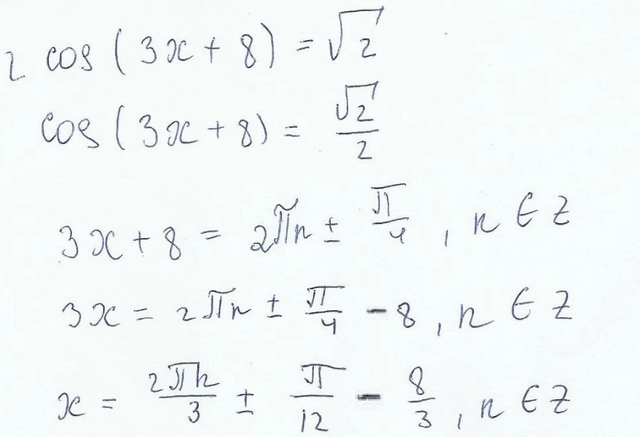 2 cos(3x+8)=√2
cos(3x+8)=√2/2
3x+8=2πn±π/4, n∈Z
3x=2πn±π/4-8, n∈Z
x=2πn/3±π/12-8/3, n∈Z